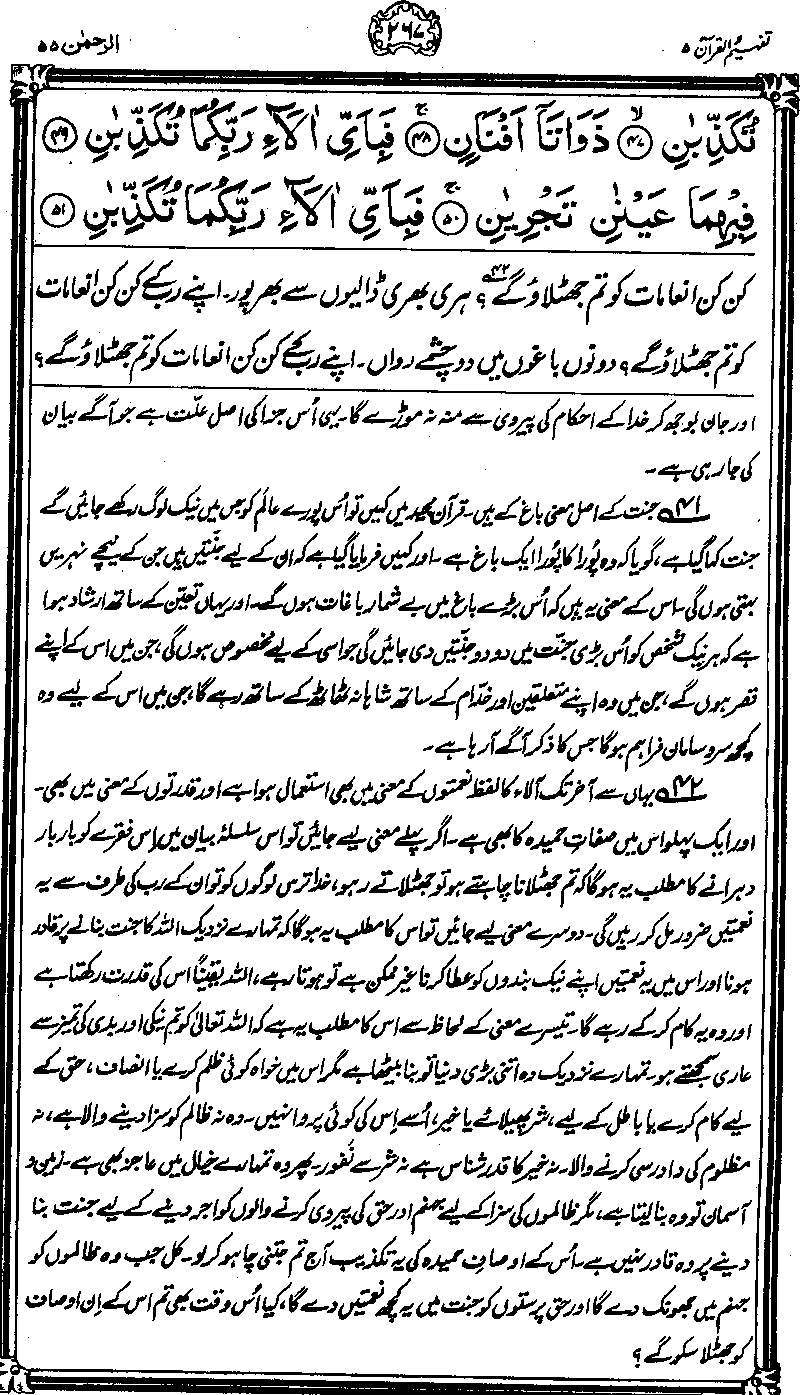 تفہیم القرآن ۵
۲۶۷
الرحمٰن ۵۵
تُكَذِّبٰنِ ﴿۴۷﴾ ذَوَاتَاۤ اَفْنَانٍ ﴿۴۸﴾ فَبِاَيِّ اٰلَآءِ رَبِّكُمَا تُكَذِّبٰنِ ﴿۴۹﴾
فِيْهِمَا عَيْنٰنِ تَجْرِيٰنِ ﴿۵۰﴾ فَبِاَيِّ اٰلَآءِ رَبِّكُمَا تُكَذِّبٰنِ ﴿۵۱﴾
کن کن انعامات کو تم جھٹلاؤ گے؟ ۴۲ ہری بھری ڈالیوں سے بھرپور۔ اپنے رب کے کن کن انعامات
کو تم جھٹلاؤ گے؟ دونوں باغوں میں دو چشمے رواں۔ اپنے رب کے کن کن انعامات کو تم جھٹلاؤ گے؟
اور جان بوجھ کر خدا کے احکام کی پیروی سے منہ نہ موڑے گا۔ یہی اُس جزا کی اصل علّت ہے جو آگے بیان
کی جا رہی ہے۔
۴۱ جنت کے اصل معنی باغ کے ہیں۔ قرآن مجید میں کہیں تو اُس پورے عالَم کو جس میں نیک لوگ رکھے جائیں گے
جنت کہا گیا ہے، گویا کہ وہ پُورا کا پُورا ایک باغ ہے۔ اور کہیں فرمایا گیا ہے کہ ان کے لیے جنّتیں ہیں جن کے نیچے نہریں
بہتی ہوں گی۔ اس کے معنی یہ ہیں کہ اُس بڑے باغ میں بے شمار باغات ہوں گے۔ اور یہاں تعیّن کے ساتھ ارشاد ہوا
ہے کہ ہر نیک شخص کو اُس بڑی جنّت میں دو دو جنّتیں دی جائیں گی جو اسی کے لیے مخصوص ہوں گی، جن میں اس کے اپنے
قصر ہوں گے، جن میں وہ اپنے متعلقین اور خدّام کے ساتھ شاہانہ ٹھاٹھ کے ساتھ رہے گا، جن میں اس کے لیے وہ
کچھ سروسامان فراہم ہوگا جس کا ذکر آگے آ رہا ہے۔
۴۲ یہاں سے آخر تک آلاء کا لفظ نعمتوں کے معنی میں بھی استعمال ہوا ہے اور قدرتوں کے معنی میں بھی۔
اور ایک پہلو اس میں صفاتِ حمیدہ کا بھی ہے۔ اگر پہلے معنی لیے جائیں تو اس سلسلۂ بیان میں اِس فقرے کو بار بار
دہرانے کا مطلب یہ ہوگا کہ تم جھٹلانا چاہتے ہو تو جھٹلاتے رہو، خدا ترس لوگوں کو تو ان کے رب کی طرف سے یہ
نعمتیں ضرور مل کر رہیں گی۔ دوسرے معنی لیے جائیں تو اس کا مطلب یہ ہوگا کہ تمہارے نزدیک اللہ کا جنت بنانے پر قادر
ہونا اور اس میں یہ نعمتیں اپنے نیک بندوں کو عطا کرنا غیر ممکن ہے تو ہوتا رہے، اللہ یقیناً اس کی قدرت رکھتا ہے
اور وہ یہ کام کر کے رہے گا۔ تیسرے معنی کے لحاظ سے اس کا مطلب یہ ہے کہ اللہ تعالیٰ کو تم نیکی اور بدی کی تمیز سے
عاری سمجھتے ہو۔ تمہارے نزدیک وہ اتنی بڑی دنیا تو بنا بیٹھا ہے مگر اس میں خواہ کوئی ظلم کرے یا انصاف، حق کے
لیے کام کرے یا باطل کے لیے، شر پھیلائے یا خیر، اُسے اِس کی کوئی پروا نہیں۔ وہ نہ ظالم کو سزا دینے والا ہے، نہ
مظلوم کی دادرسی کرنے والا۔ نہ خیر کا قدر شناس ہے نہ شر سے نَفور۔ پھر وہ تمہارے خیال میں عاجز بھی ہے۔ زمین و
آسمان تو وہ بنا لیتا ہے، مگر ظالموں کی سزا کے لیے جہنم اور حق کی پیروی کرنے والوں کو اجر دینے کے لیے جنت بنا
دینے پر وہ قادر نہیں ہے۔ اُس کے اوصافِ حمیدہ کی یہ تکذیب آج تم جتنی چاہو کر لو۔ کل جب وہ ظالموں کو
جہنم میں جھونک دے گا اور حق پرستوں کو جنت میں یہ کچھ نعمتیں دے گا، کیا اُس وقت بھی تم اس کے اِن اوصاف
کو جھٹلا سکو گے؟